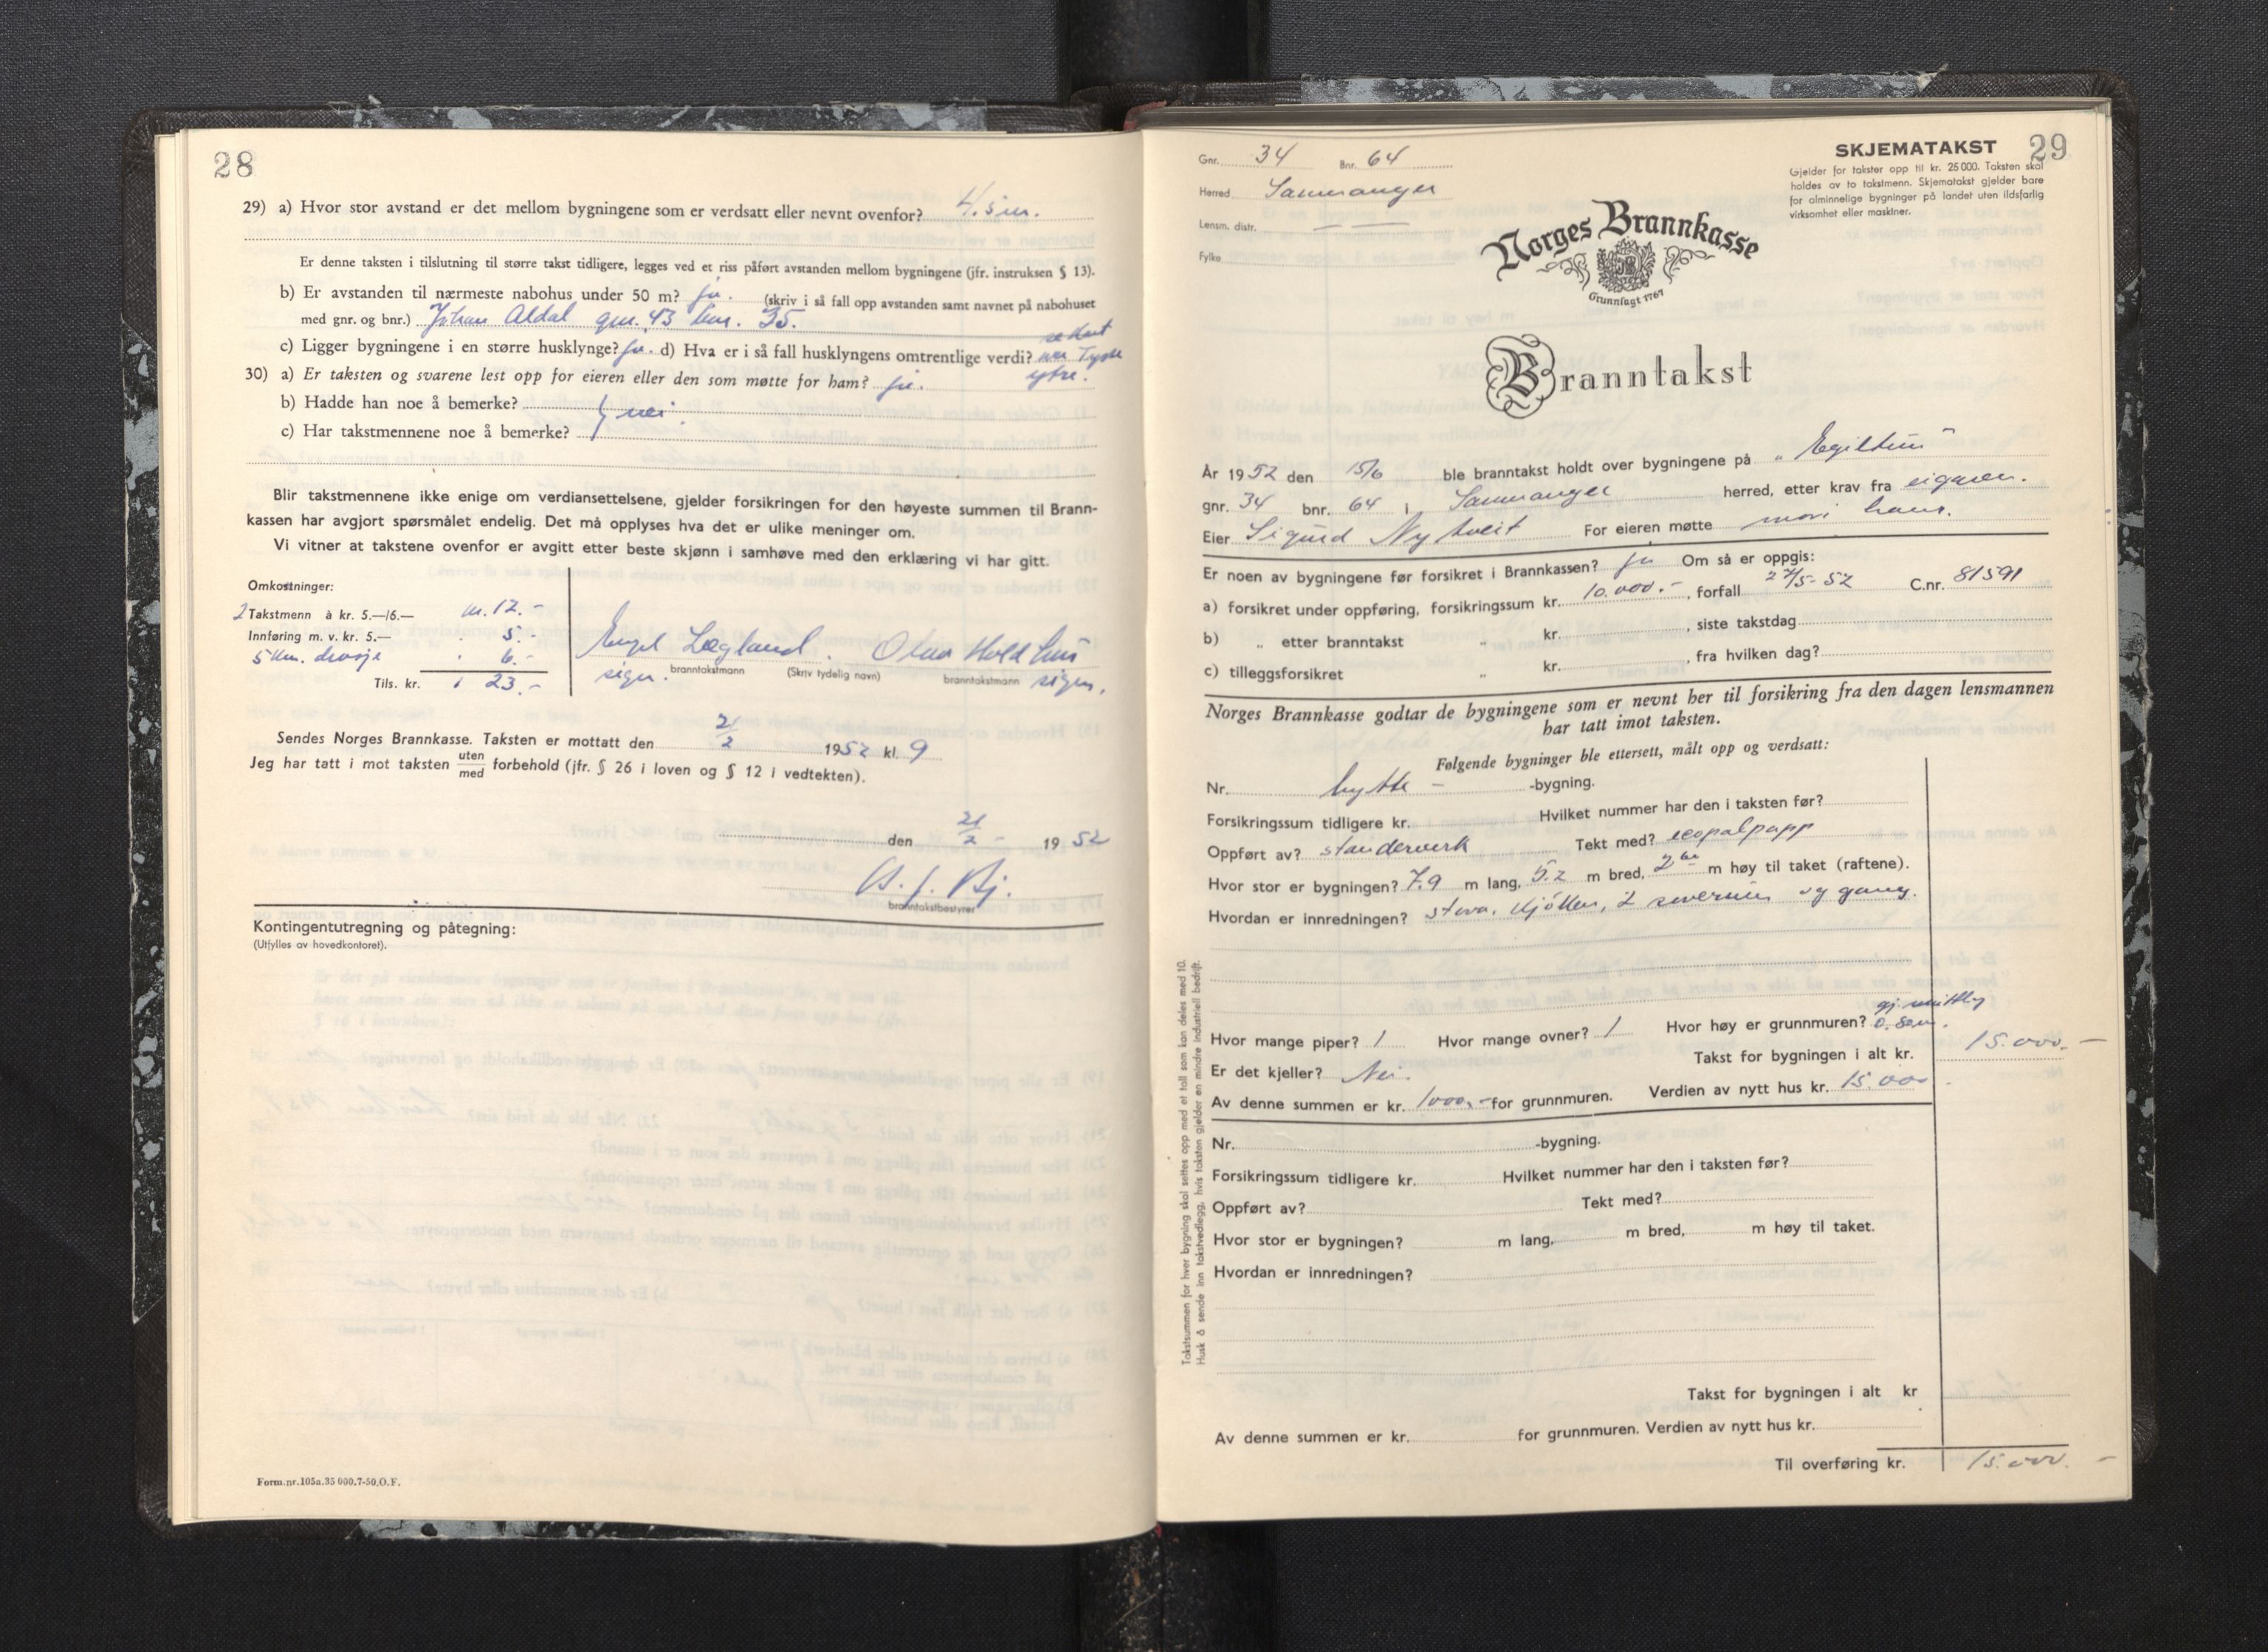 28
29) a) Hvor stor avstand er det mellom bygningene som er verdsatt eller nevnt ovenfor? 4.5 m.
Er denne taksten i tilslutning til større takst tidligere, legges ved et riss påført avstanden mellom bygningene (jfr. instruksen § 13).
b) Er avstanden til nærmeste nabohus under 50 m? ja. (skriv i så fall opp avstanden samt navnet på nabohuset
med gnr. og bnr.) Johan Aldal gnr. 43 bnr. 35.
c) Ligger bygningene i en større husklynge? ja. d) Hva er i så fall husklyngens omtrentlige verdi? se kart
ytre.
30) a) Er taksten og svarene lest opp for eieren eller den som møtte for ham? ja.
b) Hadde han noe å bemerke?
c) Har takstmennene noe å bemerke? } nei
Blir takstmennene ikke enige om verdiansettelsene, gjelder forsikringen for den høyeste summen til Brann-
kassen har avgjort spørsmålet endelig. Det må opplyses hva det er ulike meninger om.
Vi vitner at takstene ovenfor er avgitt etter beste skjønn i samhøve med den erklæring vi har gitt.
Omkostninger:
2 Takstmenn à kr. 5.—/6.— kr. 12.-
Innføring m. v. kr. 5.— 5.-
5 km. drosje 6.-
Tils. kr. 23.-
Engel Lægland. Olav Holdhus
sign. branntakstmann (Skriv tydelig navn) branntakstmann sign.
Sendes Norges Brannkasse. Taksten er mottatt den 2/2 1952 kl. 9
Jeg har tatt i mot taksten uten/med forbehold (jfr. § 26 i loven og § 12 i vedtekten).
den 2/2 - 1952
branntakstbestyrer
Kontingentutregning og påtegning:
(Utfylles av hovedkontoret).
Form.nr.105a.35 000.7-50.O.F.
29
SKJEMATAKST
Gjelder for takster opp til kr. 25 000. Taksten skal
holdes av to takstmenn. Skjematakst gjelder bare
for alminnelige bygninger på landet uten ildsfarlig
virksomhet eller maskiner.
Gnr. 34 Bnr. 64
Herred Samnanger
Lensm. distr. — —
Fylke
Norges Brannkasse
Grunnlagt 1767
Branntakst
År 1952 den 15/6 ble branntakst holdt over bygningene på "Egiltun"
gnr. 34 bnr. 64 i Samnanger herred, etter krav fra eigaren.
Eier Sigurd Nytveit For eieren møtte mori hans.
Er noen av bygningene før forsikret i Brannkassen? ja Om så er oppgis:
a) forsikret under oppføring, forsikringssum kr. 10.000.-, forfall 27/5-52 C.nr. 81591
b) „ etter branntakst „ kr. , siste takstdag
c) tilleggsforsikret „ kr. , fra hvilken dag?
Norges Brannkasse godtar de bygningene som er nevnt her til forsikring fra den dagen lensmannen
har tatt imot taksten.
Følgende bygninger ble ettersett, målt opp og verdsatt:
Nr. hytte - -bygning.
Forsikringssum tidligere kr. Hvilket nummer har den i taksten før?
Oppført av? standerverk Tekt med? icopalpapp
Hvor stor er bygningen? 7.9 m lang, 5.2 m bred, 2 m høy til taket (raftene).
Hvordan er innredningen? stova, kjökken, 2 soverum og gang.
Hvor mange piper? 1 Hvor mange ovner? 1 Hvor høy er grunnmuren? gj.snittleg 0.80 m.
Takst for bygningen i alt kr. 15.000.-
Er det kjeller? Nei.
Av denne summen er kr. 1000,- for grunnmuren. Verdien av nytt hus kr. 15.000.
Nr. -bygning.
Forsikringssum tidligere kr. Hvilket nummer har den i taksten før?
Oppført av? Tekt med?
Hvor stor er bygningen? m lang, m bred, m høy til taket.
Hvordan er innredningen?
Takst for bygningen i alt kr
Av denne summen er kr. for grunnmuren. Verdien av nytt hus kr.
Til overføring kr. 15.000.-
Takstsummen for hver bygning skal settes opp med et tall som kan deles med 10.
Husk å sende inn takstvedlegg, hvis taksten gjelder en mindre industriell bedrift.